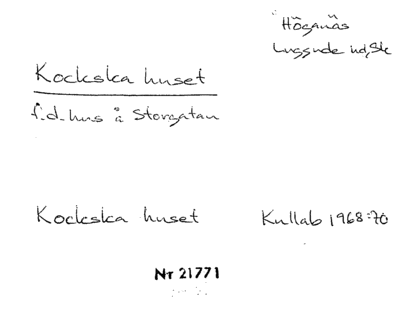 Höganäs
Luggude hd, Sk
Kockska huset
f.d. hus å Storgatan
Kockska huset
Kullab 1968:70
Nr 21771